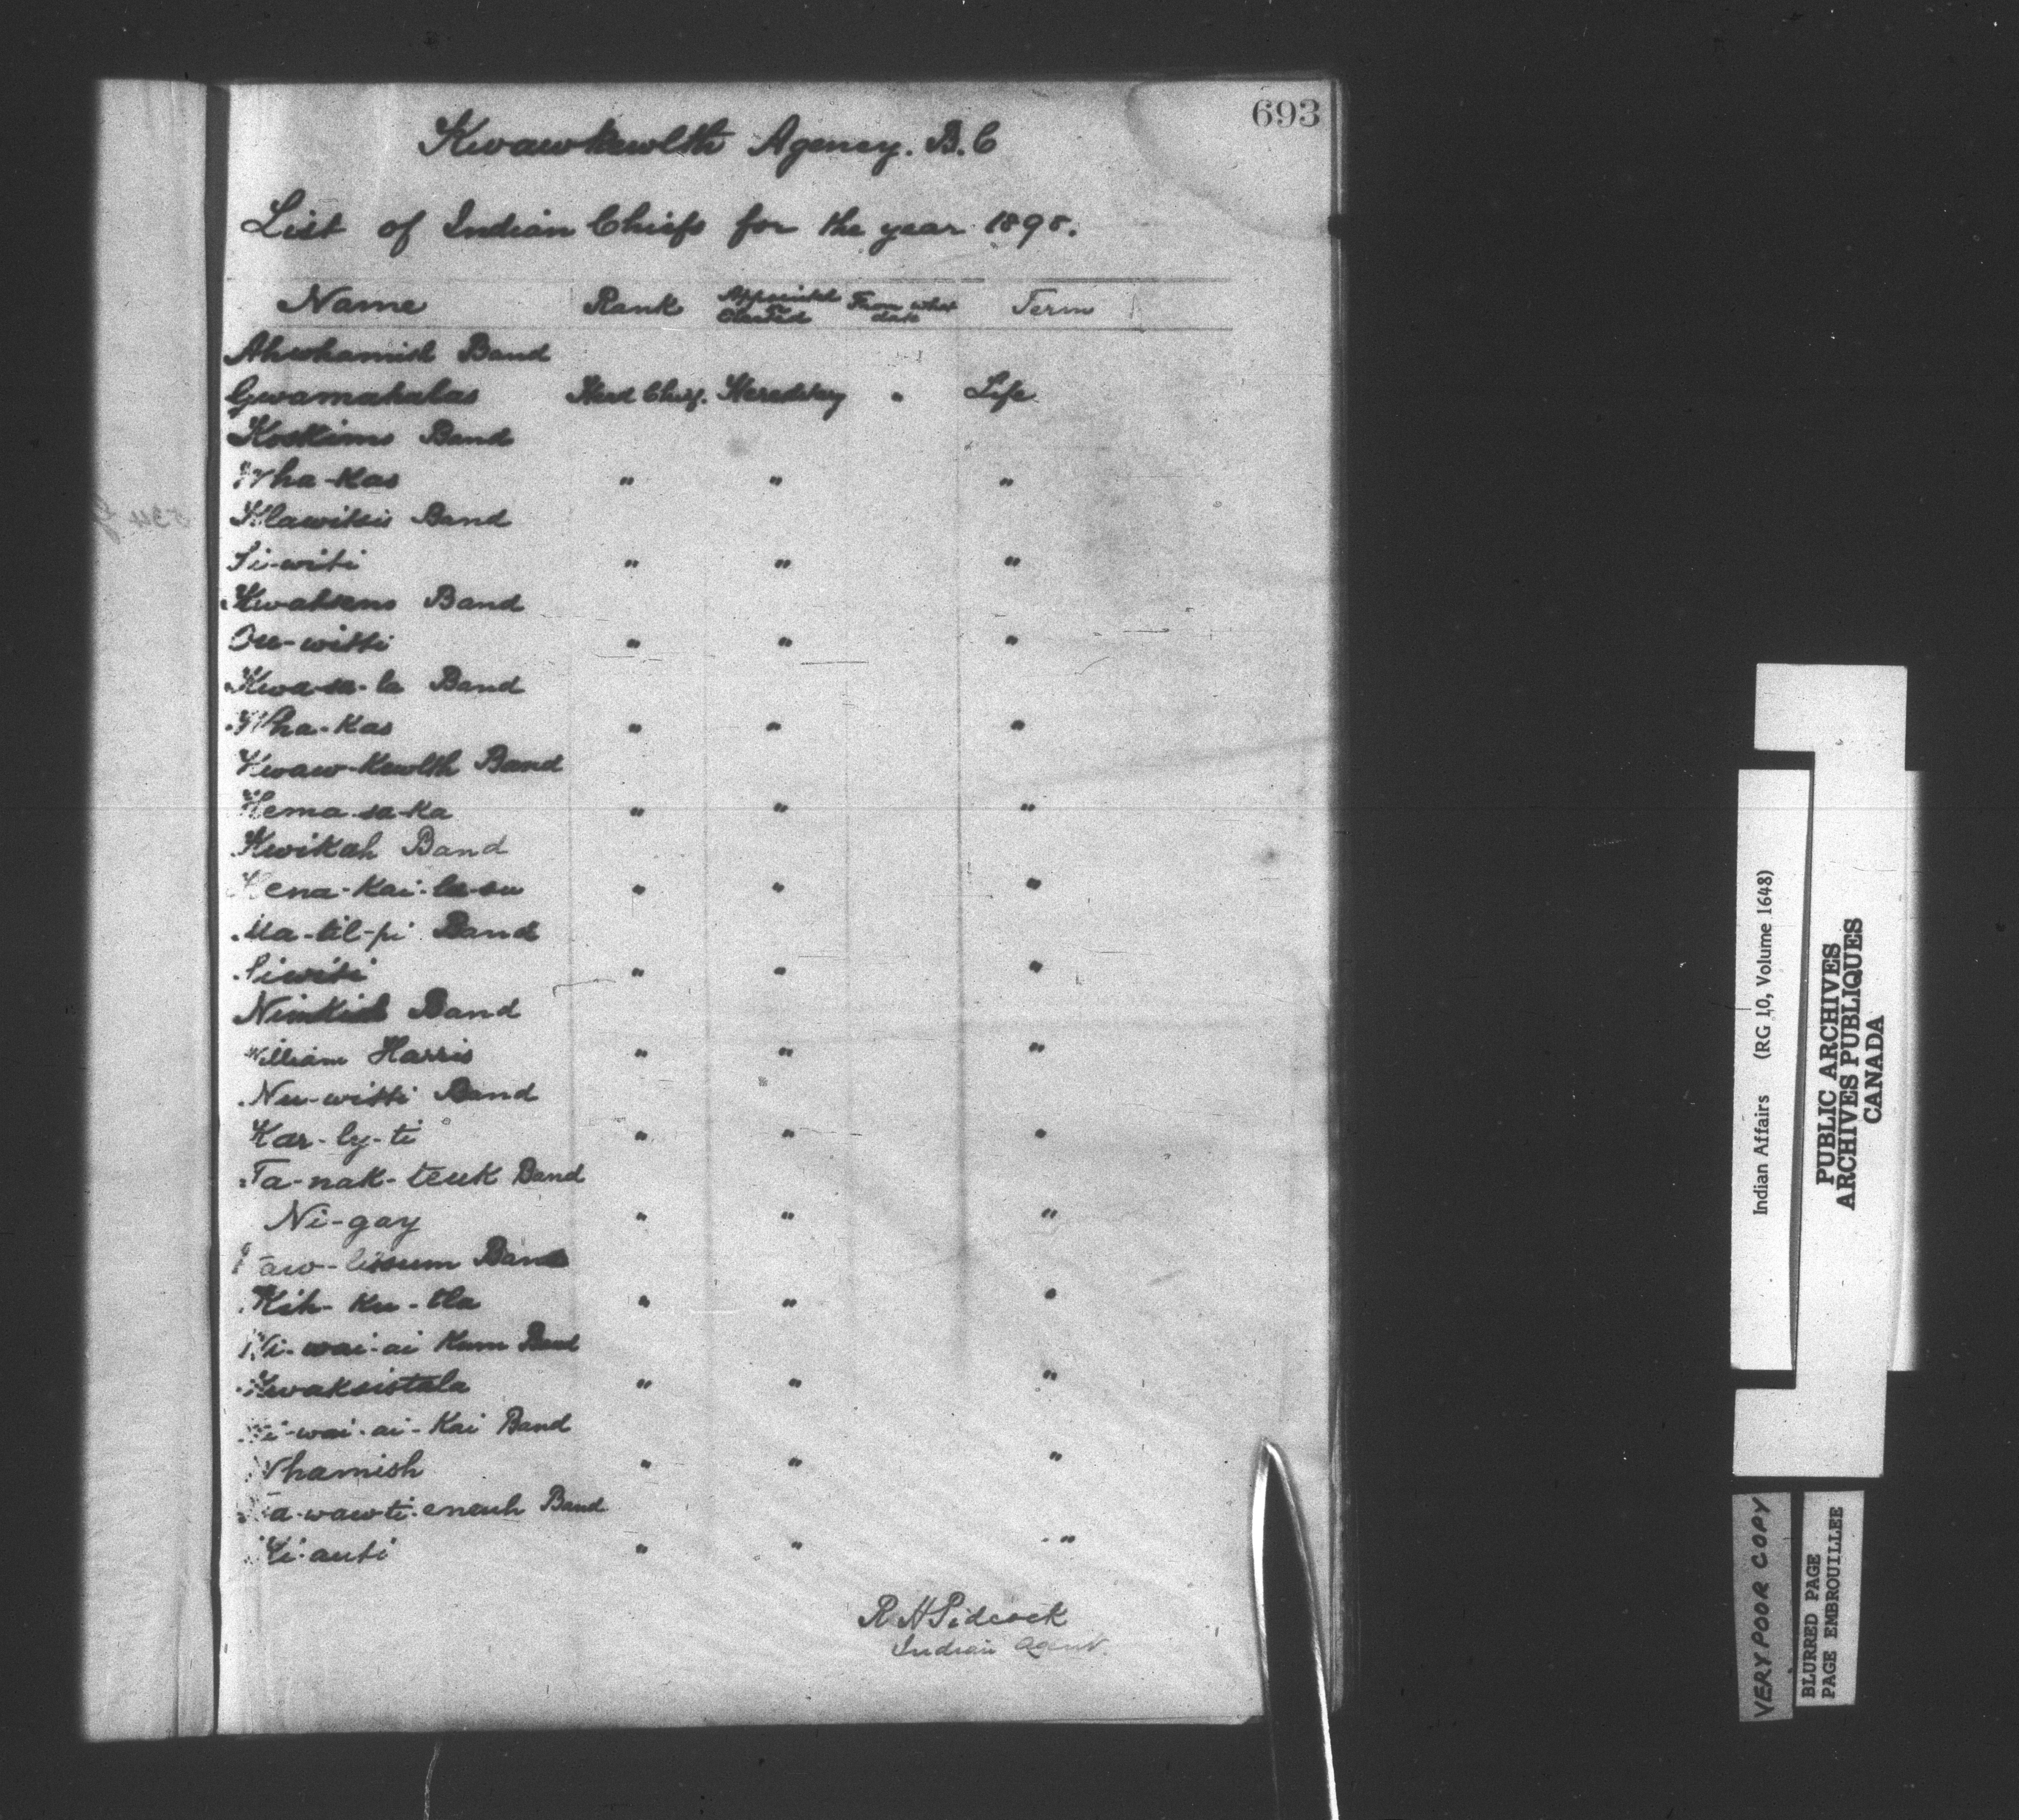 693
Kwawkewlth Agency. B.C
List of Indian Chiefs for the year 1895.
Name Rank Appointed Elected From what date Term
Ahwhamish Band
Gwamahalas Head Chief. Hereditary " Life
Koskimo Band
Wha-Kas " " "
Klawitsis Band
Si-witi " " "
Kwatseno Band
Ou-witti " " "
Kwa-sa-la Band
Wha-Kas " " "
Kwaw-Kewlth Band
Hema-sa-Ka " " "
Kwikah Band
Hena-Kai-la-su " " "
Ma-til-pi Band
Siwiti " " "
Nimkish Band
William Harris " " "
Nu-witti Band
Kar-ly-ti " " "
Ta-nak-teuk Band
Ni-gay " " "
aw-lissum Band
Kih-ku-tla " " "
Wi-wai-ai Kum Band
Kwaksistala " " "
Wi-wai-ai-Kai Band
Whamish " " "
a-waw-ti-eneuh Band
Ki-auti " " "
R H Pidcock
Indian Agent.
Indian Affairs (RG 10, Volume 1648)
PUBLIC ARCHIVES
ARCHIVES PUBLIQUES
CANADA
VERY POOR COPY
BLURRED PAGE
PAGE EMBROUILLEE